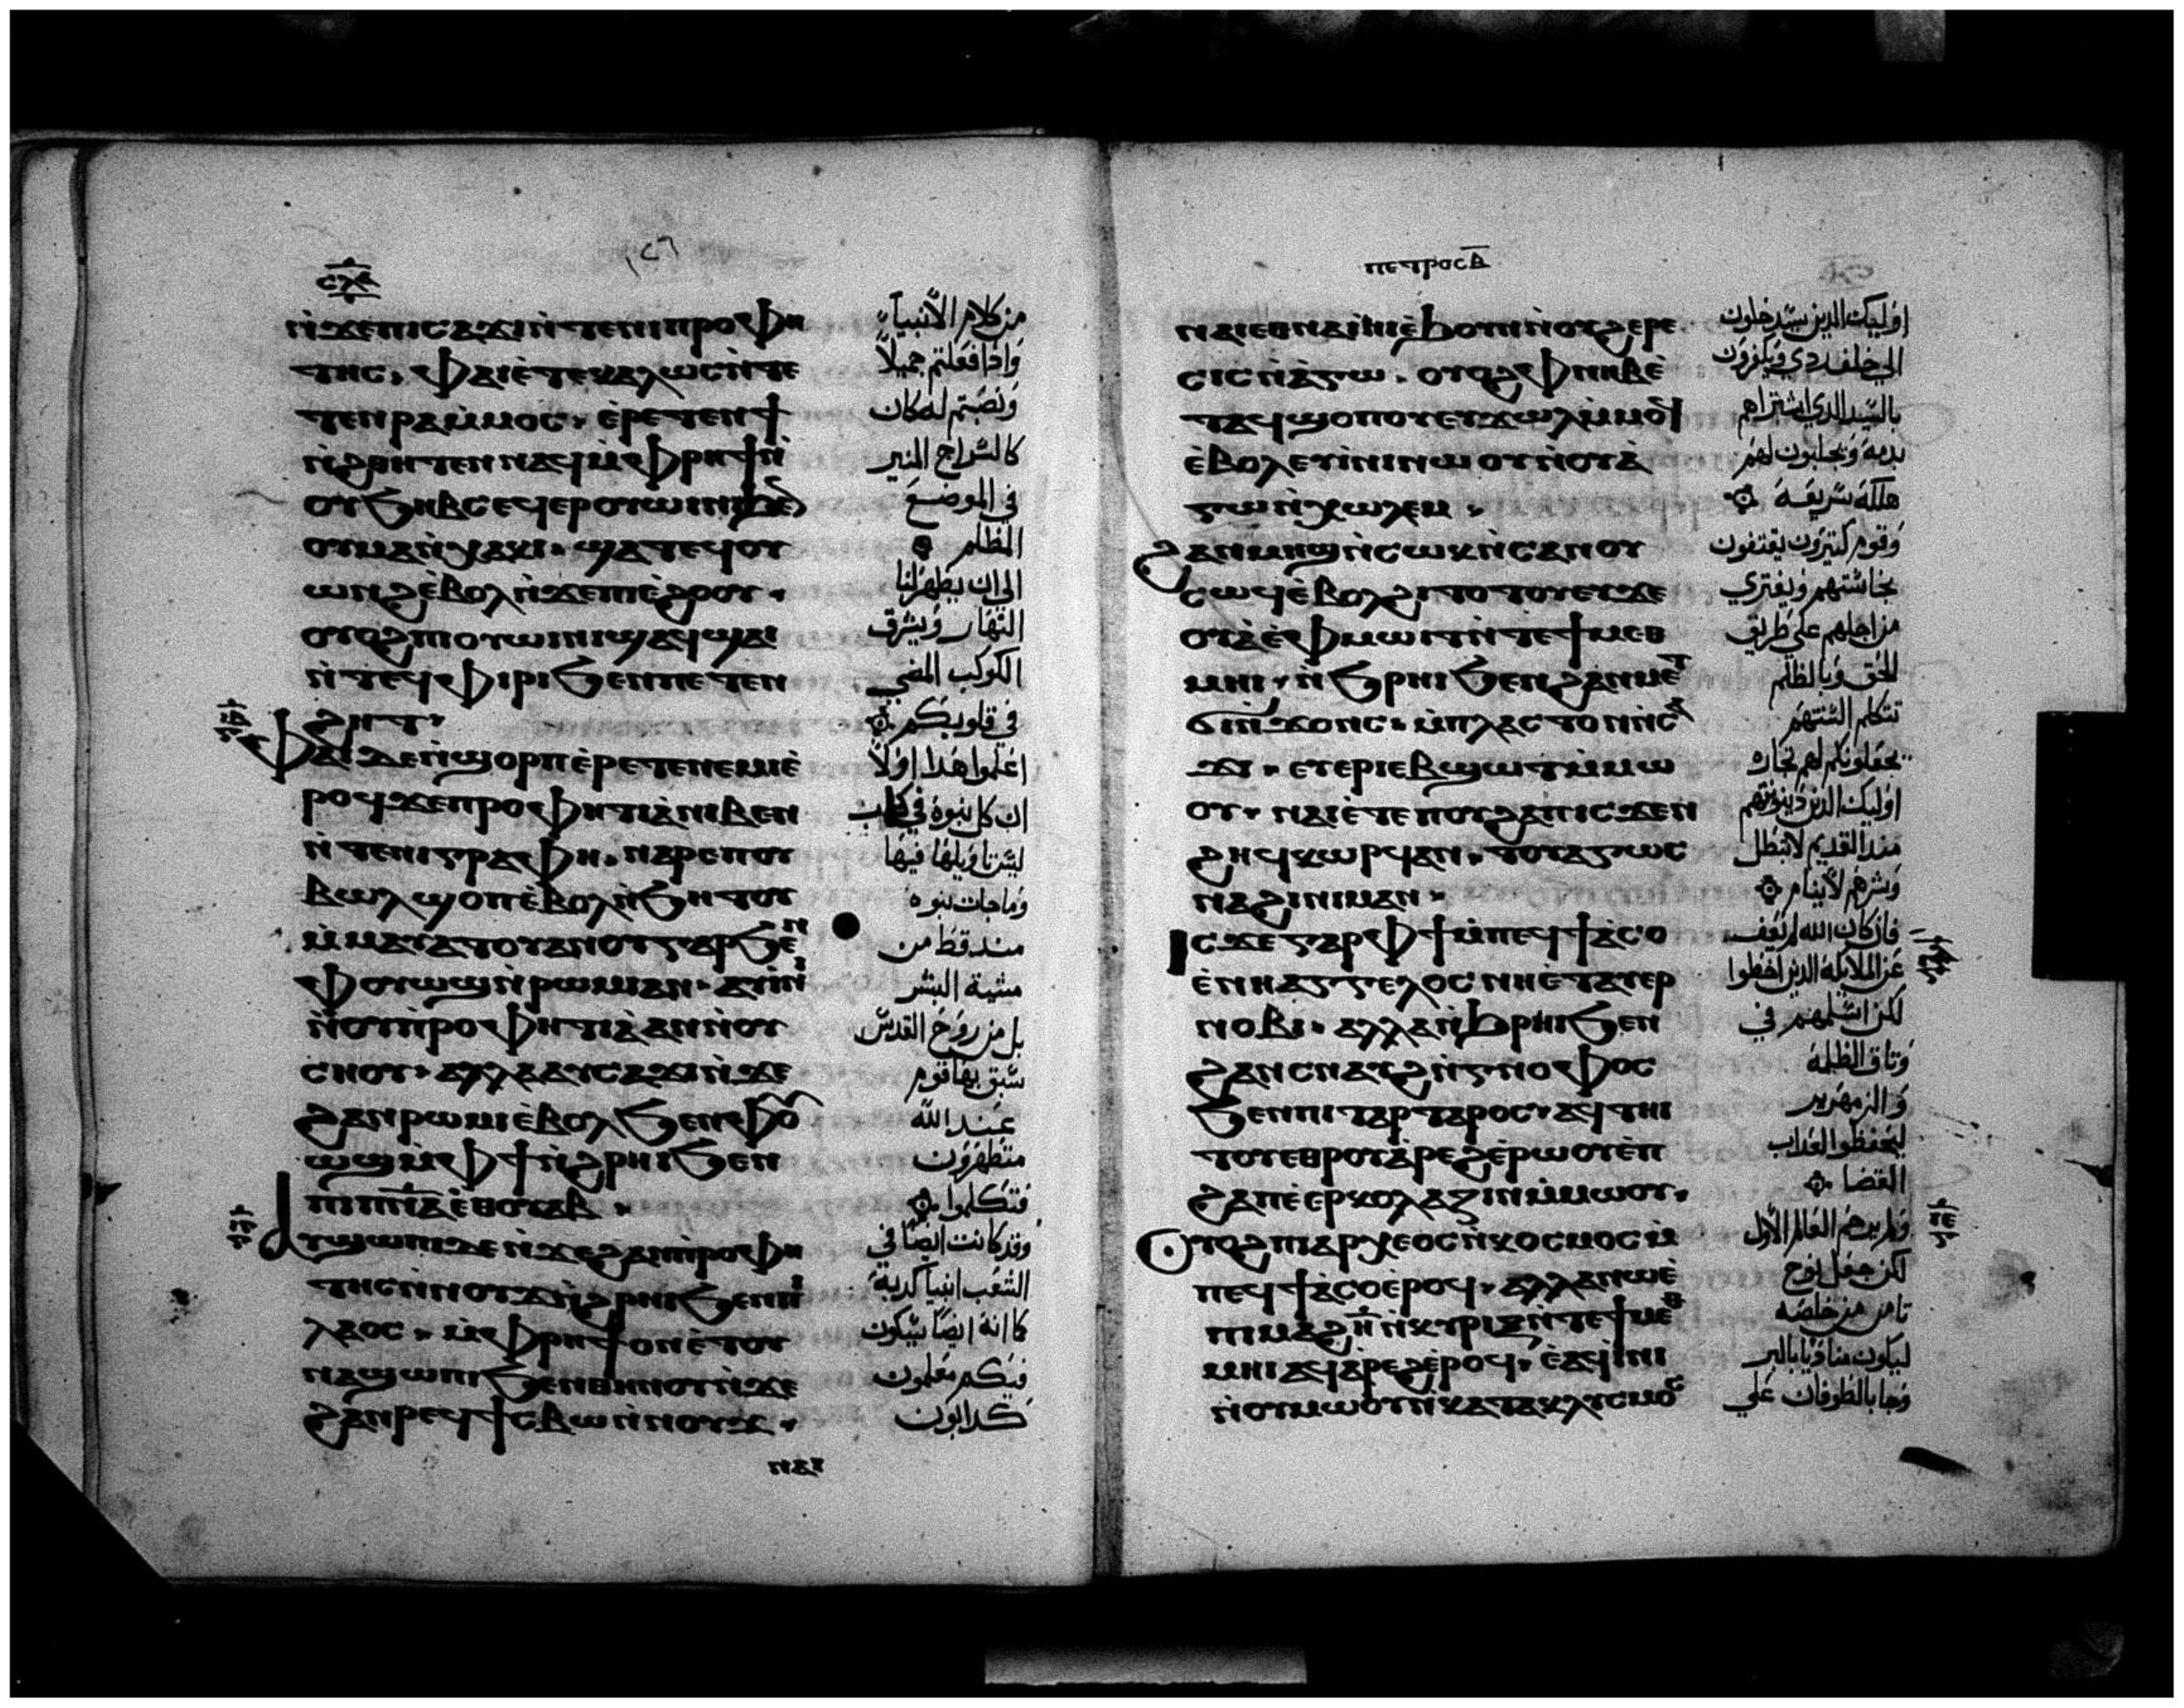 ⲛ̀ϫⲉⲡⲓⲥⲁϫⲓⲛ̀ⲧⲉⲛⲓⲡⲣⲟⲫⲏ
ⲧⲏⲥ· ⲫⲁⲓⲉ̀ⲧⲉⲕⲁⲗⲱⲥⲛ̀ⲧⲉ
ⲧⲉⲛⲣⲁⲙ̀ⲙⲟⲥ· ⲉ̀ⲣⲉⲧⲉⲛϯ
ⲛ̀ϩⲑⲏⲧⲉⲛⲛⲁϥⲙ̀ⲫⲣⲏϯⲛ̀
ⲟⲩϧⲏⲃⲥⲉϥⲉⲣⲟⲩⲱⲓⲛⲓϧⲉ
ⲟⲩⲙⲁⲛ̀ⲭⲁⲕⲓ· ϣⲁⲧⲉϥⲟⲩ
ⲱⲛϩⲉ̀ⲃⲟⲗⲛ̀ϫⲉⲡⲓⲉ̀ϩⲟⲟⲩ·
ⲟⲩⲟϩⲡⲓⲟⲩⲱⲓⲛⲓϣⲁϥϣⲁⲓ
ⲛ̀ⲧⲉϥⲫⲓⲣⲓϧⲉⲛⲡⲉⲧⲉⲛ
ϩⲏⲧ·
ⲫⲁⲓⲇⲉⲛ̀ϣⲟⲣⲡⲉ̀ⲣⲉⲧⲉⲛⲉⲙⲓⲉ̀
ⲣⲟϥϫⲉⲡⲣⲟⲫⲏⲧⲓⲁ̀ⲛⲓⲃⲉⲛ
ⲛ̀ⲧⲉⲛⲓⲅⲣⲁⲫⲏ· ⲙⲁⲣⲉⲡⲟⲩ
ⲃⲱⲗϣⲟⲡⲉ̀ⲃⲟⲗⲛ̀ϧⲏⲧⲟⲩ
ⲙ̀ⲙⲁⲩⲁⲧⲟⲩⲁⲛⲟⲩⲅⲁⲣϧⲉⲛ
ⲫⲟⲩⲱϣⲛ̀ⲣⲱⲙⲓⲁⲛ· ⲁⲩⲓ̀ⲛⲓ
ⲛ̀ⲟⲩⲡ̀ⲣⲟⲫⲏⲧⲓⲁ̀ⲁⲛⲛ̀ⲟⲩ
ⲥⲏⲟⲩ· ⲁⲗⲗⲁⲁⲩⲥⲁϫⲓⲛ̀ϫⲉ
ϩⲁⲛⲣⲱⲙⲓⲉ̀ⲃⲟⲗϧⲉⲛⲫⲟⲩ
ⲱϣⲙ̀ⲫϯⲛ̀ϩⲣⲏⲓϧⲉⲛ
ⲡⲓⲡⲛ̅ⲁ̅ⲉ̀ⲑⲟⲩⲁⲃ·
ⲁⲩϣⲱⲡⲓⲇⲉⲛ̀ϫⲉϩⲁⲛⲡ̀ⲣⲟⲫⲏ
ⲧⲏⲥⲛ̀ⲛⲟⲩϫⲛ̀ϩⲣⲏⲓϧⲉⲛⲡⲓ
ⲗⲁⲟⲥ· ⲙ̀ⲫⲣⲏϯⲟⲛⲉ̀ⲧⲟⲩ
ⲛⲁϣⲱⲡⲓϧⲉⲛⲑⲏⲛⲟⲩⲛ̀ϫⲉ
ϩⲁⲛⲣⲉϥϯⲥⲃⲱⲛ̀ⲛⲟⲩϫ·
ⲛⲁⲓ
من كلام الأنبيآء
واذا فعلتم جميلاً
ونصبتم له كان
كالسراج المنير
في الموضع
المظلم
الى ان يظهر لنا
النهار ويشرق
الكوكب المضي
في قلوبكم
اعلموا هدا اولاً
ان كل نبوة في كتاب
ليس تاويلها فيها
وما جات نبوة
مند قط من
مشية البشر
بل من روح القدس
سبق بها قوم
عند الله
متطهرون
فتكلموا
وقد كانت ايضاً في
الشعب انبيا كدبة
كما انه ايضاً سيكون
فيكم معلمون
كدابون
ⲡⲉⲧⲣⲟⲥ ⲃ̅
ⲛⲁⲓⲉⲑⲛⲁⲓ̀ⲛⲓⲉ̀ϧⲟⲩⲛⲛ̀ⲟⲩϩⲉⲣⲉ
ⲥⲓⲥⲛ̀ⲁⲅⲱ· ⲟⲩⲟϩⲫⲛⲏⲃⲉ̀
ⲧⲁϥϣⲟⲡⲟⲩⲉⲩϫⲱⲗⲙ̀ⲙⲟϥ
ⲉ̀ⲃⲟⲗⲉⲩⲓ̀ⲛⲓⲛⲱⲟⲩⲛ̀ⲟⲩⲁ̀
ⲅⲱⲛ̀ⲭⲱⲗⲉⲙ·
ϩⲁⲛⲙⲏϣⲛ̀ⲥⲱⲕⲛ̀ⲥⲁⲛⲟⲩ
ⲥⲱϥⲉ̀ⲃⲟⲗϩⲓⲧⲟⲧⲟⲩⲉⲩϫⲉ
ⲟⲩⲁ̀ⲉ̀ⲫⲙⲱⲓⲧⲛ̀ⲧⲉϯⲙⲉⲑ
ⲙⲏⲓ· ⲛ̀ϧⲣⲏⲓϧⲉⲛϩⲁⲛⲙⲉⲧ
ϭⲓⲛ̀ϫⲟⲛⲥ· ⲙ̀ⲡⲗⲁⲥⲧⲟⲛⲛ̀ⲥⲁ
ϫⲓ· ⲉⲩⲉⲣⲓⲉⲃϣⲱⲧⲙ̀ⲙⲱ
ⲟⲩ· ⲛⲁⲓⲉ̀ⲧⲉⲡⲟⲩϩⲁⲡⲓⲥϫⲉⲛ
ϩⲏϥⲕⲱⲣϥⲁⲛ· ⲧⲟⲩⲁⲅⲱⲥ
ⲛⲁϩⲓⲛⲓⲙⲁⲛ·
ⲓⲥϫⲉⲅⲁⲣⲫϯⲙ̀ⲡⲉϥϯⲁ̀ⲥⲟ
ⲉ̀ⲛⲓⲁⲅⲅⲉⲗⲟⲥⲛⲏⲉ̀ⲧⲁⲩⲉⲣ
ⲛⲟⲃⲓ· ⲁⲗⲗⲁⲛ̀ϧⲣⲏⲓϧⲉⲛ
ϩⲁⲛⲥⲛⲁⲩϩⲛ̀ⲅⲛⲟⲫⲟⲥ
ϧⲉⲛⲡⲓⲧⲁⲣⲧⲁⲣⲟⲥ· ⲁϥⲧⲏⲓ
ⲧⲟⲩⲉⲑⲣⲟⲩⲁ̀ⲣⲉϩⲉ̀ⲣⲱⲟⲩⲉ̀ⲡ
ϩⲁⲡⲉ̀ⲉⲣⲕⲟⲗⲁⲍⲓⲛⲙ̀ⲙⲱⲟⲩ·
ⲟⲩⲟϩⲡⲓⲁⲣⲭⲉⲟⲥⲛ̀ⲕⲟⲥⲙⲟⲥⲙ̀
ⲡⲉϥϯⲁ̀ⲥⲟⲉ̀ⲣⲟϥ· ⲁⲗⲗⲁⲛⲱⲉ̀
ⲡⲓⲙⲁϩⲏ̅ⲛ̀ⲕⲩⲣⲓⲝⲛ̀ⲧⲉϯⲙⲉⲑ
ⲙⲏⲓⲁϥⲁ̀ⲣⲉϩⲉ̀ⲣⲟϥ· ⲉ̀ⲁϥⲓ̀ⲛⲓ
ⲛ̀ⲟⲩⲙⲱⲟⲩⲛ̀ⲕⲁⲧⲁⲕⲗⲩⲥⲙⲟⲥ
اوليك الدين سيدخلون
الي خلف ردي ويكفرون
بالسيد الدي اشتراهم
بدمه ويجلبون لهم
هلكة سريعة
وقوم كتيرون يقتفون
نجاستهم ويفتري
من اجلهم علي طريق
الحق وبالظلم
تتكلم السنتهم
يجعلونكم لهم تجارة
اوليك الدين دينونتهم
مند القديم لا تبطل
وشرهم لا ينام
فان كان الله لم يعف
عن الملايكة الدين اخطوا
لكن اسلمهم في
وتاق الظلمة
والزمهرير
ليحفظوا لعداب
القضا
ولم يرحم العالم الأول
لكن جعل نوح
تامن من خلصه
ليكون مناديا بالبر
وجا بالطوفان علي